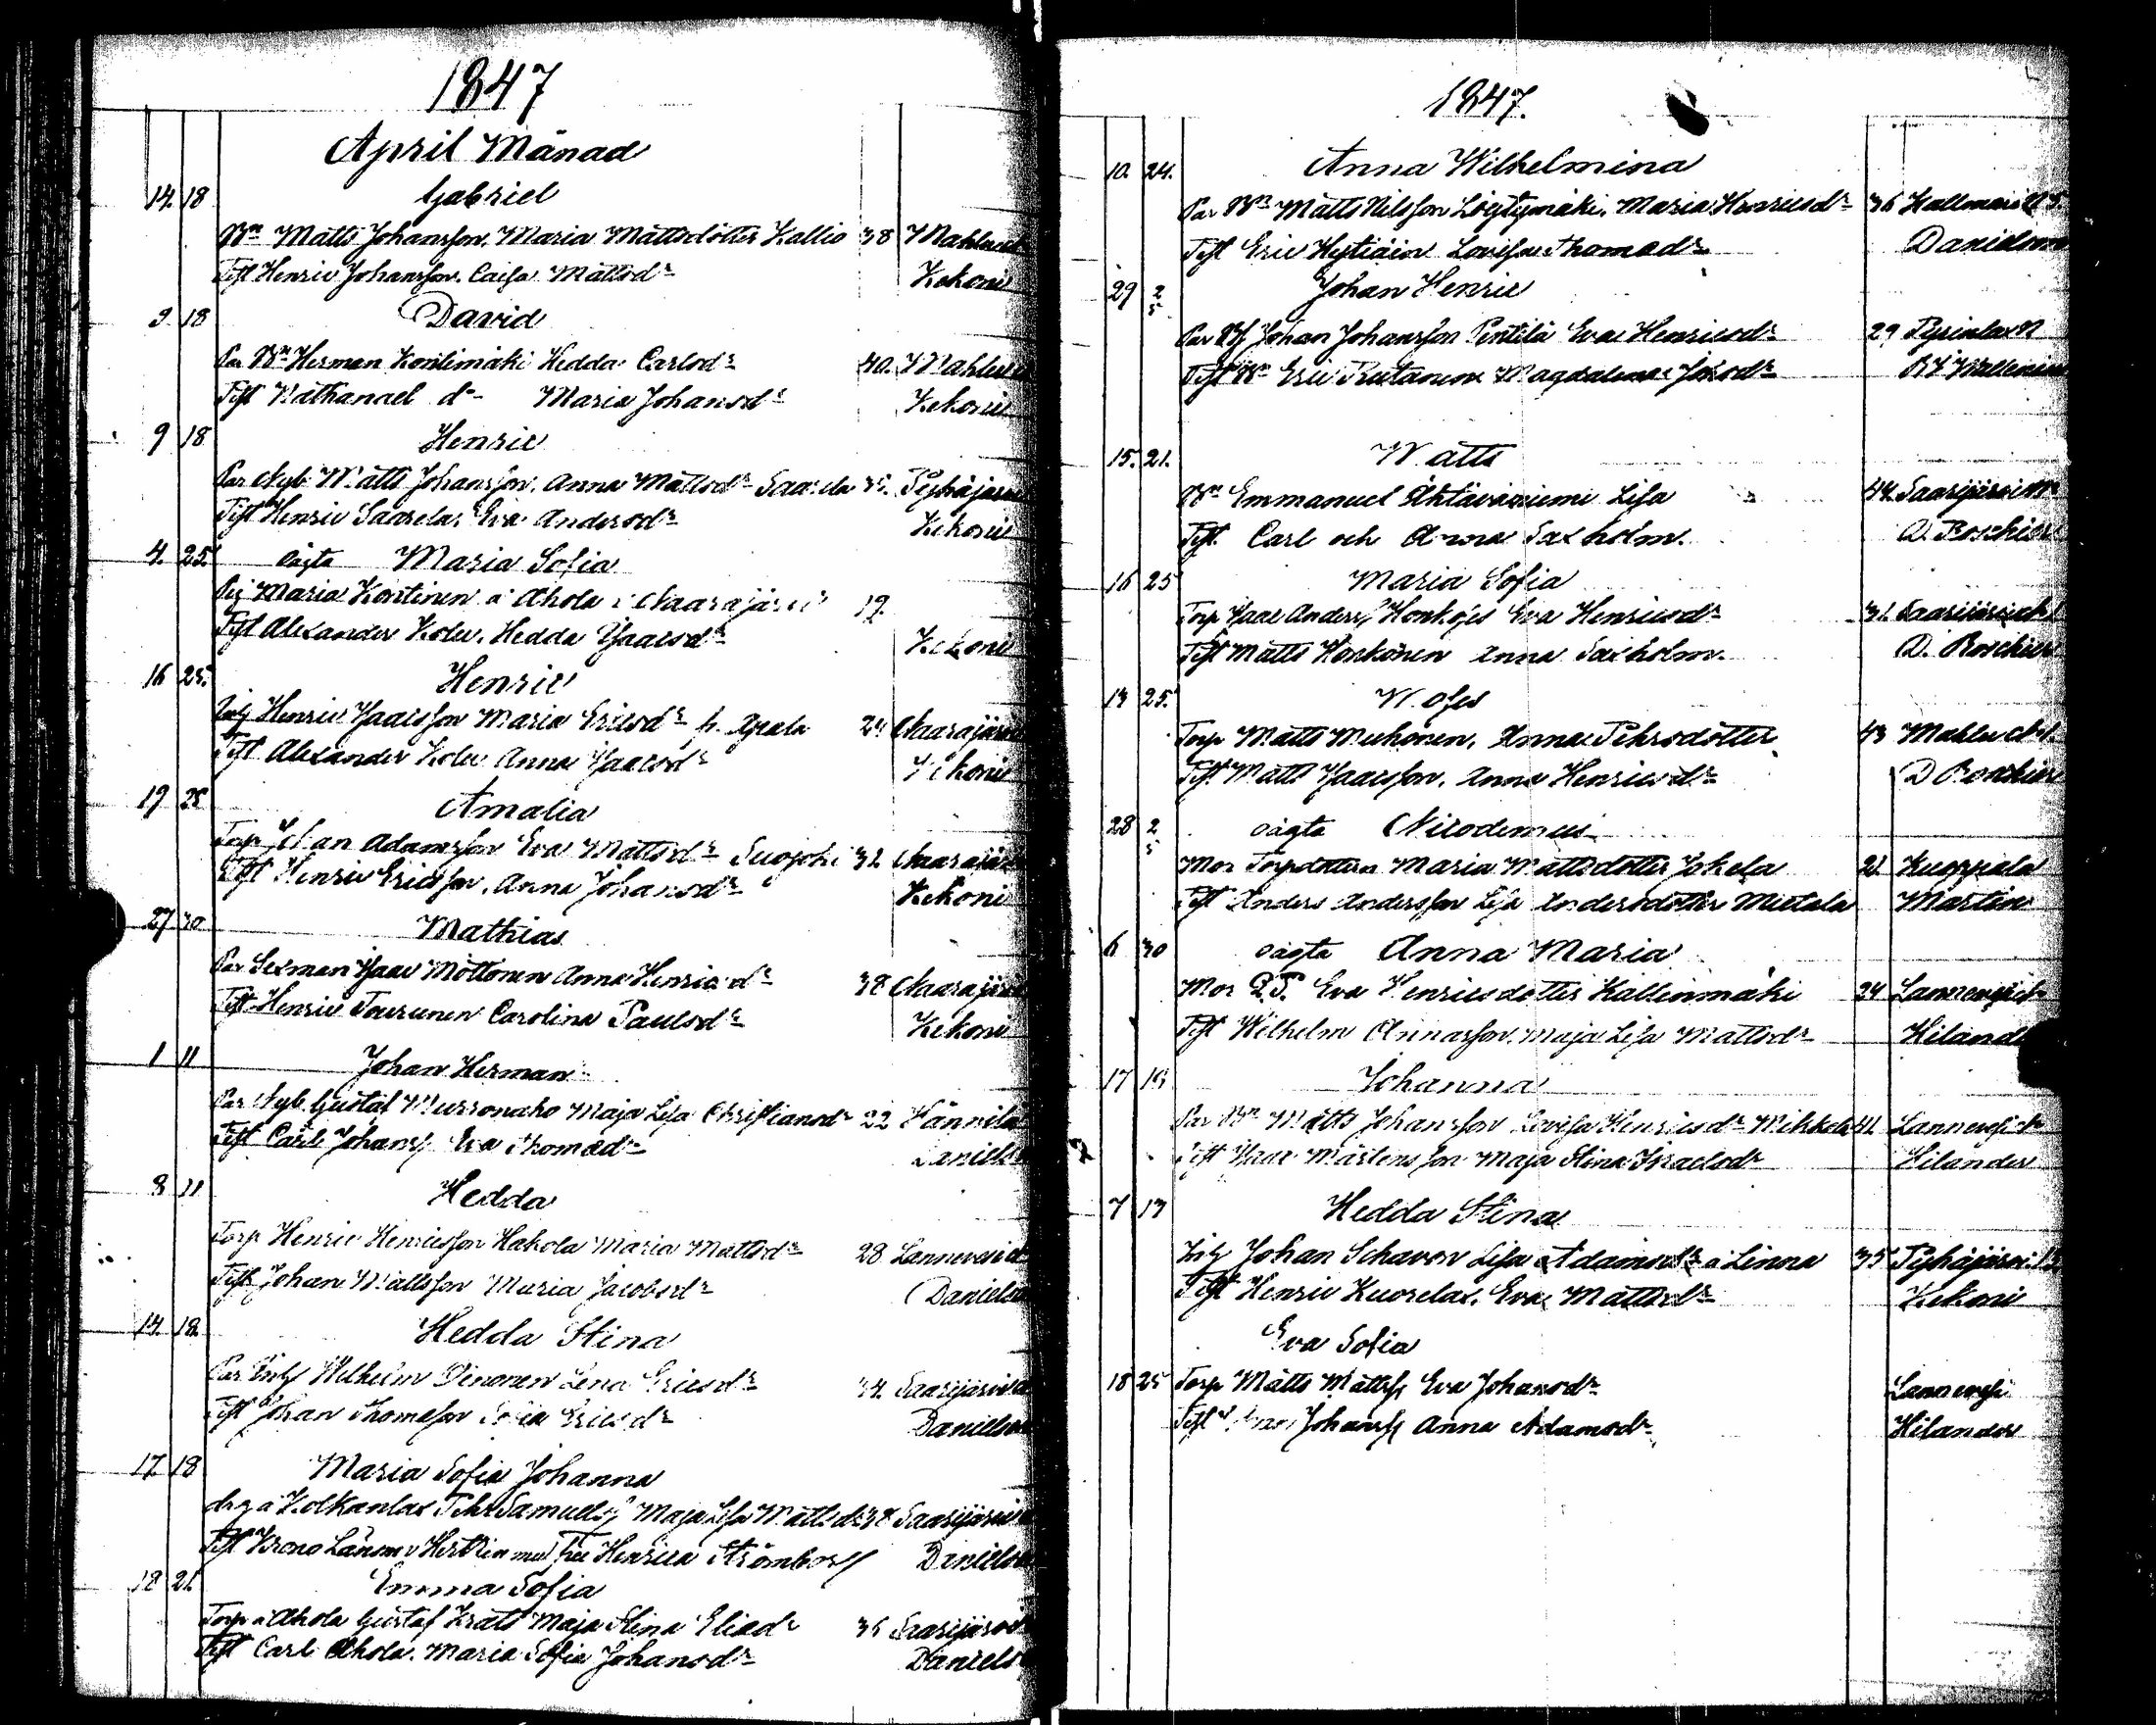 1847
April Månad
14. 18 Gabriel
Bn Matts Johansson. Maria Mattsdotter Kallio 38 Mahlu
Test Henric Johansson. Caisa Mattsdr Kekoni
9. 18 David
Par Bn Herman Kontimäki Hedda Carlsdr 40. Mahlu
Test Nathanael do Maria Johansdr Kekoni
9 18 Henric
Par Nyb Matts Johansson. Anna Mattsdr Saarela Pyhäjärvi
Test Henric Saarela. Eva Andersdr Kekoni
4. 25. oägta Maria Sofia
Pig Maria Kontinen a Ahola i Naarajärvi 19.
Test Alexander Koler. Hedda Isacsdr Kekoni
16 25. Henric
Henric Isacsson Maria Ericsdr 24 Naarajärvi
Test Alexander Koler Anna Isacsdr Kekoni
19 25 Amalia
Torp Johan Adamsson Eva Mattsdr Suojoki 32 Naarajärvi
Test Henric Ericsson. Anna Johansdr Kekoni
27. 30 Mathias
Par Sexman Isac Möttönen Anna Henricsdr 38 Naarajärvi
Test Henric Tourunen Carolina Paulsdr Kekoni
1 11 Johan Herman
Par Nyb. Gustaf Murronaho Maja Lisa Christiansdr 22 Hännilä
Test Carl Johanss Eva Thomasdr Daniels
8 11 Hedda
Torp Henric Henricsson Hakola Maria Mattsdr 28 Lannevesi
Test Johan Mattsson Maria Jacobsdr Daniels
14. 18. Hedda Stina
Par Inh Wilhelm Dinonen Lena Ericsdr 34 Saarijärvi
Test Johan Thomasson Sofia Ericsdr Danielson
17. 18 Maria Sofia Johanna
drg a Kolkanlax Pehr Samuels Maja Lisa Mattsdr 38 Saarijärvi
Test Krono Länsm Hertzien med Fru Henrica Strömborg Daniels
18 21. Emma Sofia
Torp a Ahola Gustaf Kratt Maja Stina Eliasdr 36 Saarijärvi
Test Carl Ahola. Maria Sofia Johansdr Daniels
1847.
10. 24. Anna Wilhelmina
Par Bn Matts Nilsson Löytymäki. Maria Henricsdr 36 Kallmari
Test Eric Hytiäin Lovisa Thomasdr Danielson
29 2/5 Johan Henric
Par Johan Johansson Pentilä Eva Henricsdr 29 Pyrinlax
Test Bn Eric Rutanen Magdalena Johsdr
15. 21. Matts
Bn Emmanuel Ähtäväniemi Lisa 44. Saarijärvi
Test. Carl och Anna Saxholm. D. Roschier
16 25 Maria Sofia
Torp Isac Anderss Honkojes Eva Henricsdr 31. Saarijärvi
Test Matts Honkonen Anna Saxholm. D. Roschier
13 25. Moses
Torp Matts Muhonen. Anna Pehrsdotter 43 Mahlu
Test. Matts Isacsson. Anna Henricsdr D Roschier
28 2/5 oägta Nicodemus
Mor Torpdottern Maria Mattsdotter Jokela 21. Kuoppala
Test Anders Andersson Lisa Andersdotter Mietala Martin
6 30 oägta Anna Maria
Mor Eva Henricsdotter Kallenmäki 24 Lannevesi
Test Wilhelm Annasson. Maja Lisa Mattsdr Hiland
17 19 Johanna
Par Bn Matts Johansson Lovisa Henricsdr Mikkola 41. Lannevesi
Test Isac Mårtensson Maja Stina Israelsdr Hilander
7 13 Hedda Stina
Inh Johan Schavon Lisa Adamsdr a Linna 35 Pyhäjärvi
Test Henric Kuorelax. Eva Mattsdr Kekoni
Eva Sofia
18 25 Torp Matts Mattss Eva Johansdr Lannevesi
Test Johanss Anna Adamsdr Hilander